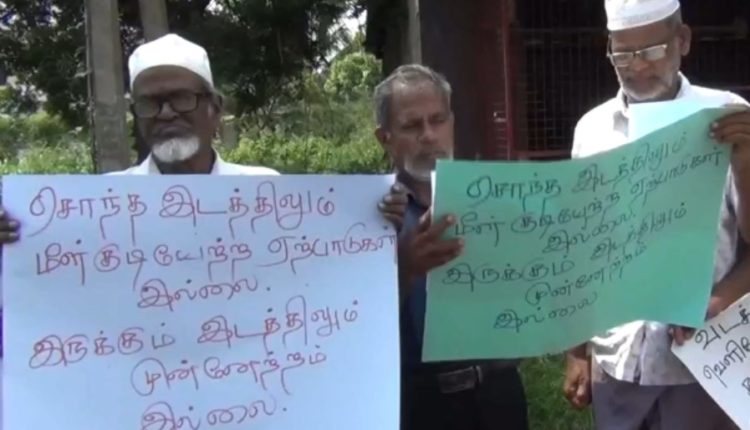 சொந்த இடத்திலும்
மீள் குடியேற்ற ஏற்பாடுகள்
இல்லை.
இருக்கும் இடத்திலும்
முன்னேற்றம்
இல்லை.
சொந்த இடத்திலும்
மீள் குடியேற்ற ஏற்பாடுகள்
இல்லை.
இருக்கும் இடத்திலும்
முன்னேற்றம்
இல்லை